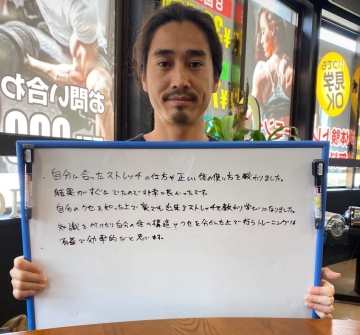 自分に合ったストレッチの仕方や正しい体の使い方を教わりました。
結果がすぐにでたので非常に良かったです。
自分のクセを知った上で家でも出来るストレッチを教わり学びになりました。
知識を付けたり自分の体の構造やクセを分かった上で行うトレーニングは
有益で効率的だと思います。
お問い合わ
いつでも
見学
OK